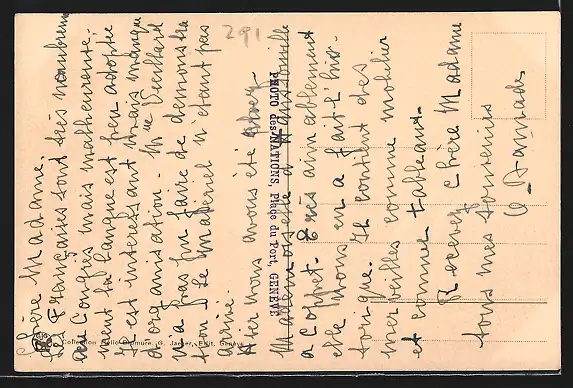 Chère Madame.
Les Françaises sont très nombreuses
au Congrès mais malheureuse-
ment la langue est peu adoptée
Il est intéressant mais manque
d'organisation - Mme Veuillard
n'a pas pu faire de démonstra
tion le matériel n'étant pas
arrivé.
Hier nous avons été chez
Mademoiselle d'Haussonville
a Coppet. Très aimablement
elle nous en a fait l'his-
torique. Il contient des
merveilles comme mobilier
et comme tableaux.
Recevez Chère Madame
tous mes souvenirs
291
PHOTO des NATIONS, Place du Port, GENÈVE
Collection Hélio-Biomure. G. Jaeger, Edit. Genève